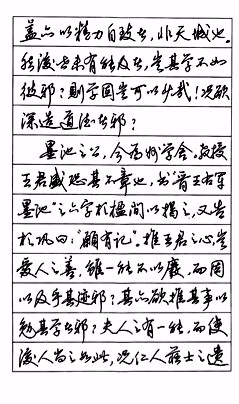 盖亦以精力自致者,非天成也。
然后世未有能及者,岂其学不如
彼邪?则学固岂可以少哉!况欲
深造道德者邪?
墨池之上,今为州学舍。教授
王君盛恐其不章也,书“晋王右军
墨池”之六字於楹间以揭之,又告
於巩曰:“愿有记”。推王君之心,岂
爱人之善,虽一能不以废,而因
以及乎其迹邪?其亦欲推其事以
勉其学者邪?夫人之有一能,而使
後人尚之如此,况仁人莊士之遗